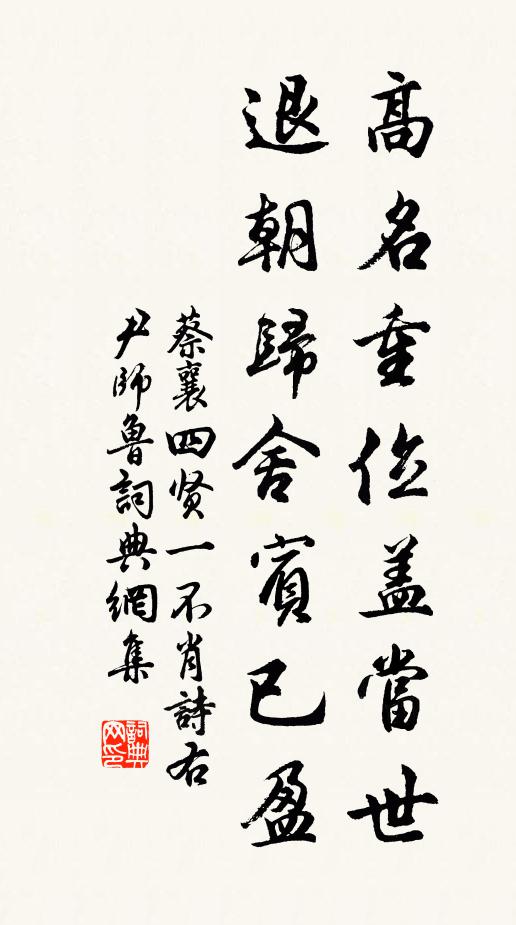 高名重位盖當世
退朝歸舍賓已盈
蔡襄四贤一不肖詩右
尹師魯詞典網集
詞典网印